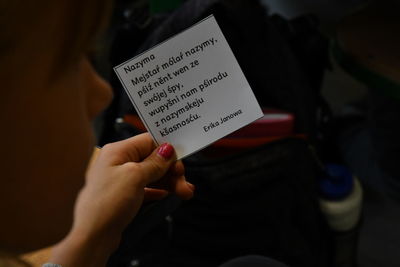 Nazyma
Mejstaŕ mólaŕ nazymy,
pśiź něnt wen ze
swójej śpy,
wupyšni nam pśirodu
z nazymskeju
kšasnosću.
Erika Janowa